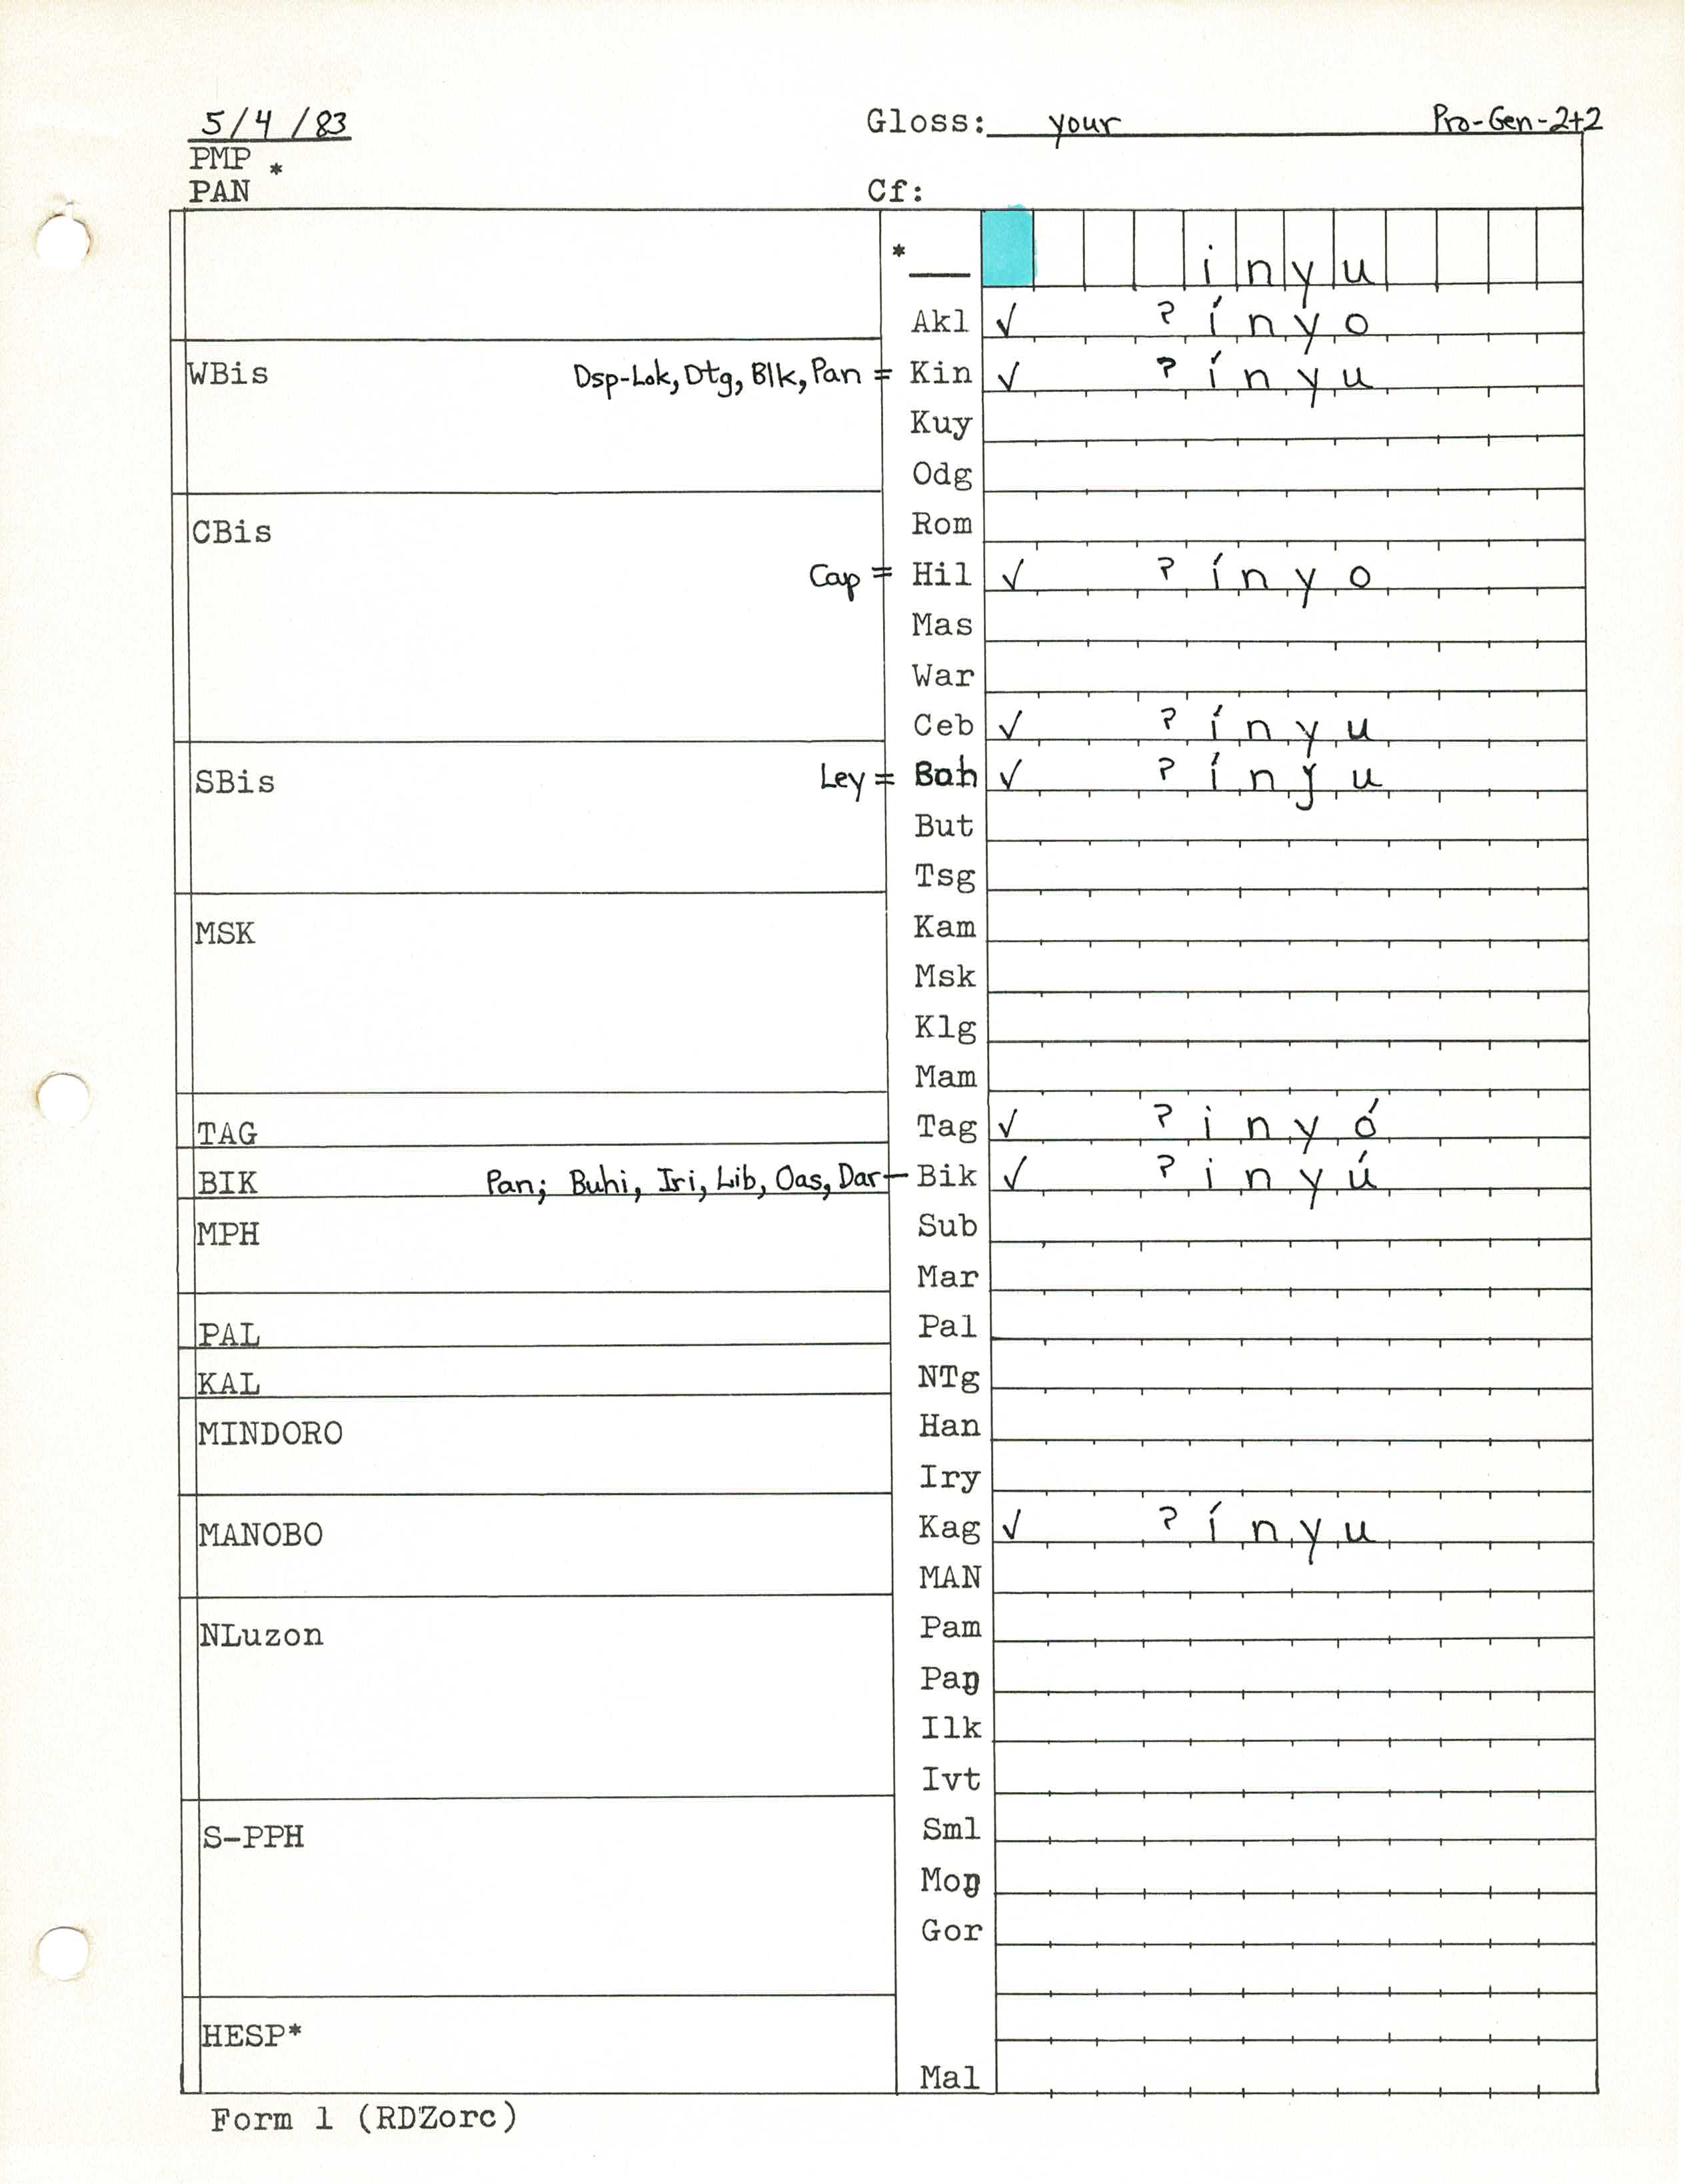 5/4/83 Gloss: your Pro-Gen-2+2
PMP *
PAN Cf:
*__ inyu
Akl ✓ ʔínyo
WBis Dsp-Lok, Dtg, Blk, Pan = Kin ✓ ʔínyu
Kuy
Odg
CBis Rom
Cap = Hil ✓ ʔínyo
Mas
War
Ceb ✓ ʔínyu
SBis Ley = Boh ✓ ʔínǰu
But
Tsg
MSK Kam
Msk
Klg
Mam
TAG Tag ✓ ʔinyó
BIK Pan; Buhi, Iri, Lib, Oas, Dar — Bik ✓ ʔinyú
MPH Sub
Mar
PAL Pal
KAL NTg
MINDORO Han
Iry
MANOBO Kag ✓ ʔínyu
MAN
NLuzon Pam
Paŋ
Ilk
Ivt
S-PPH Sml
Moŋ
Gor
HESP*
Mal
Form 1 (RDZorc)